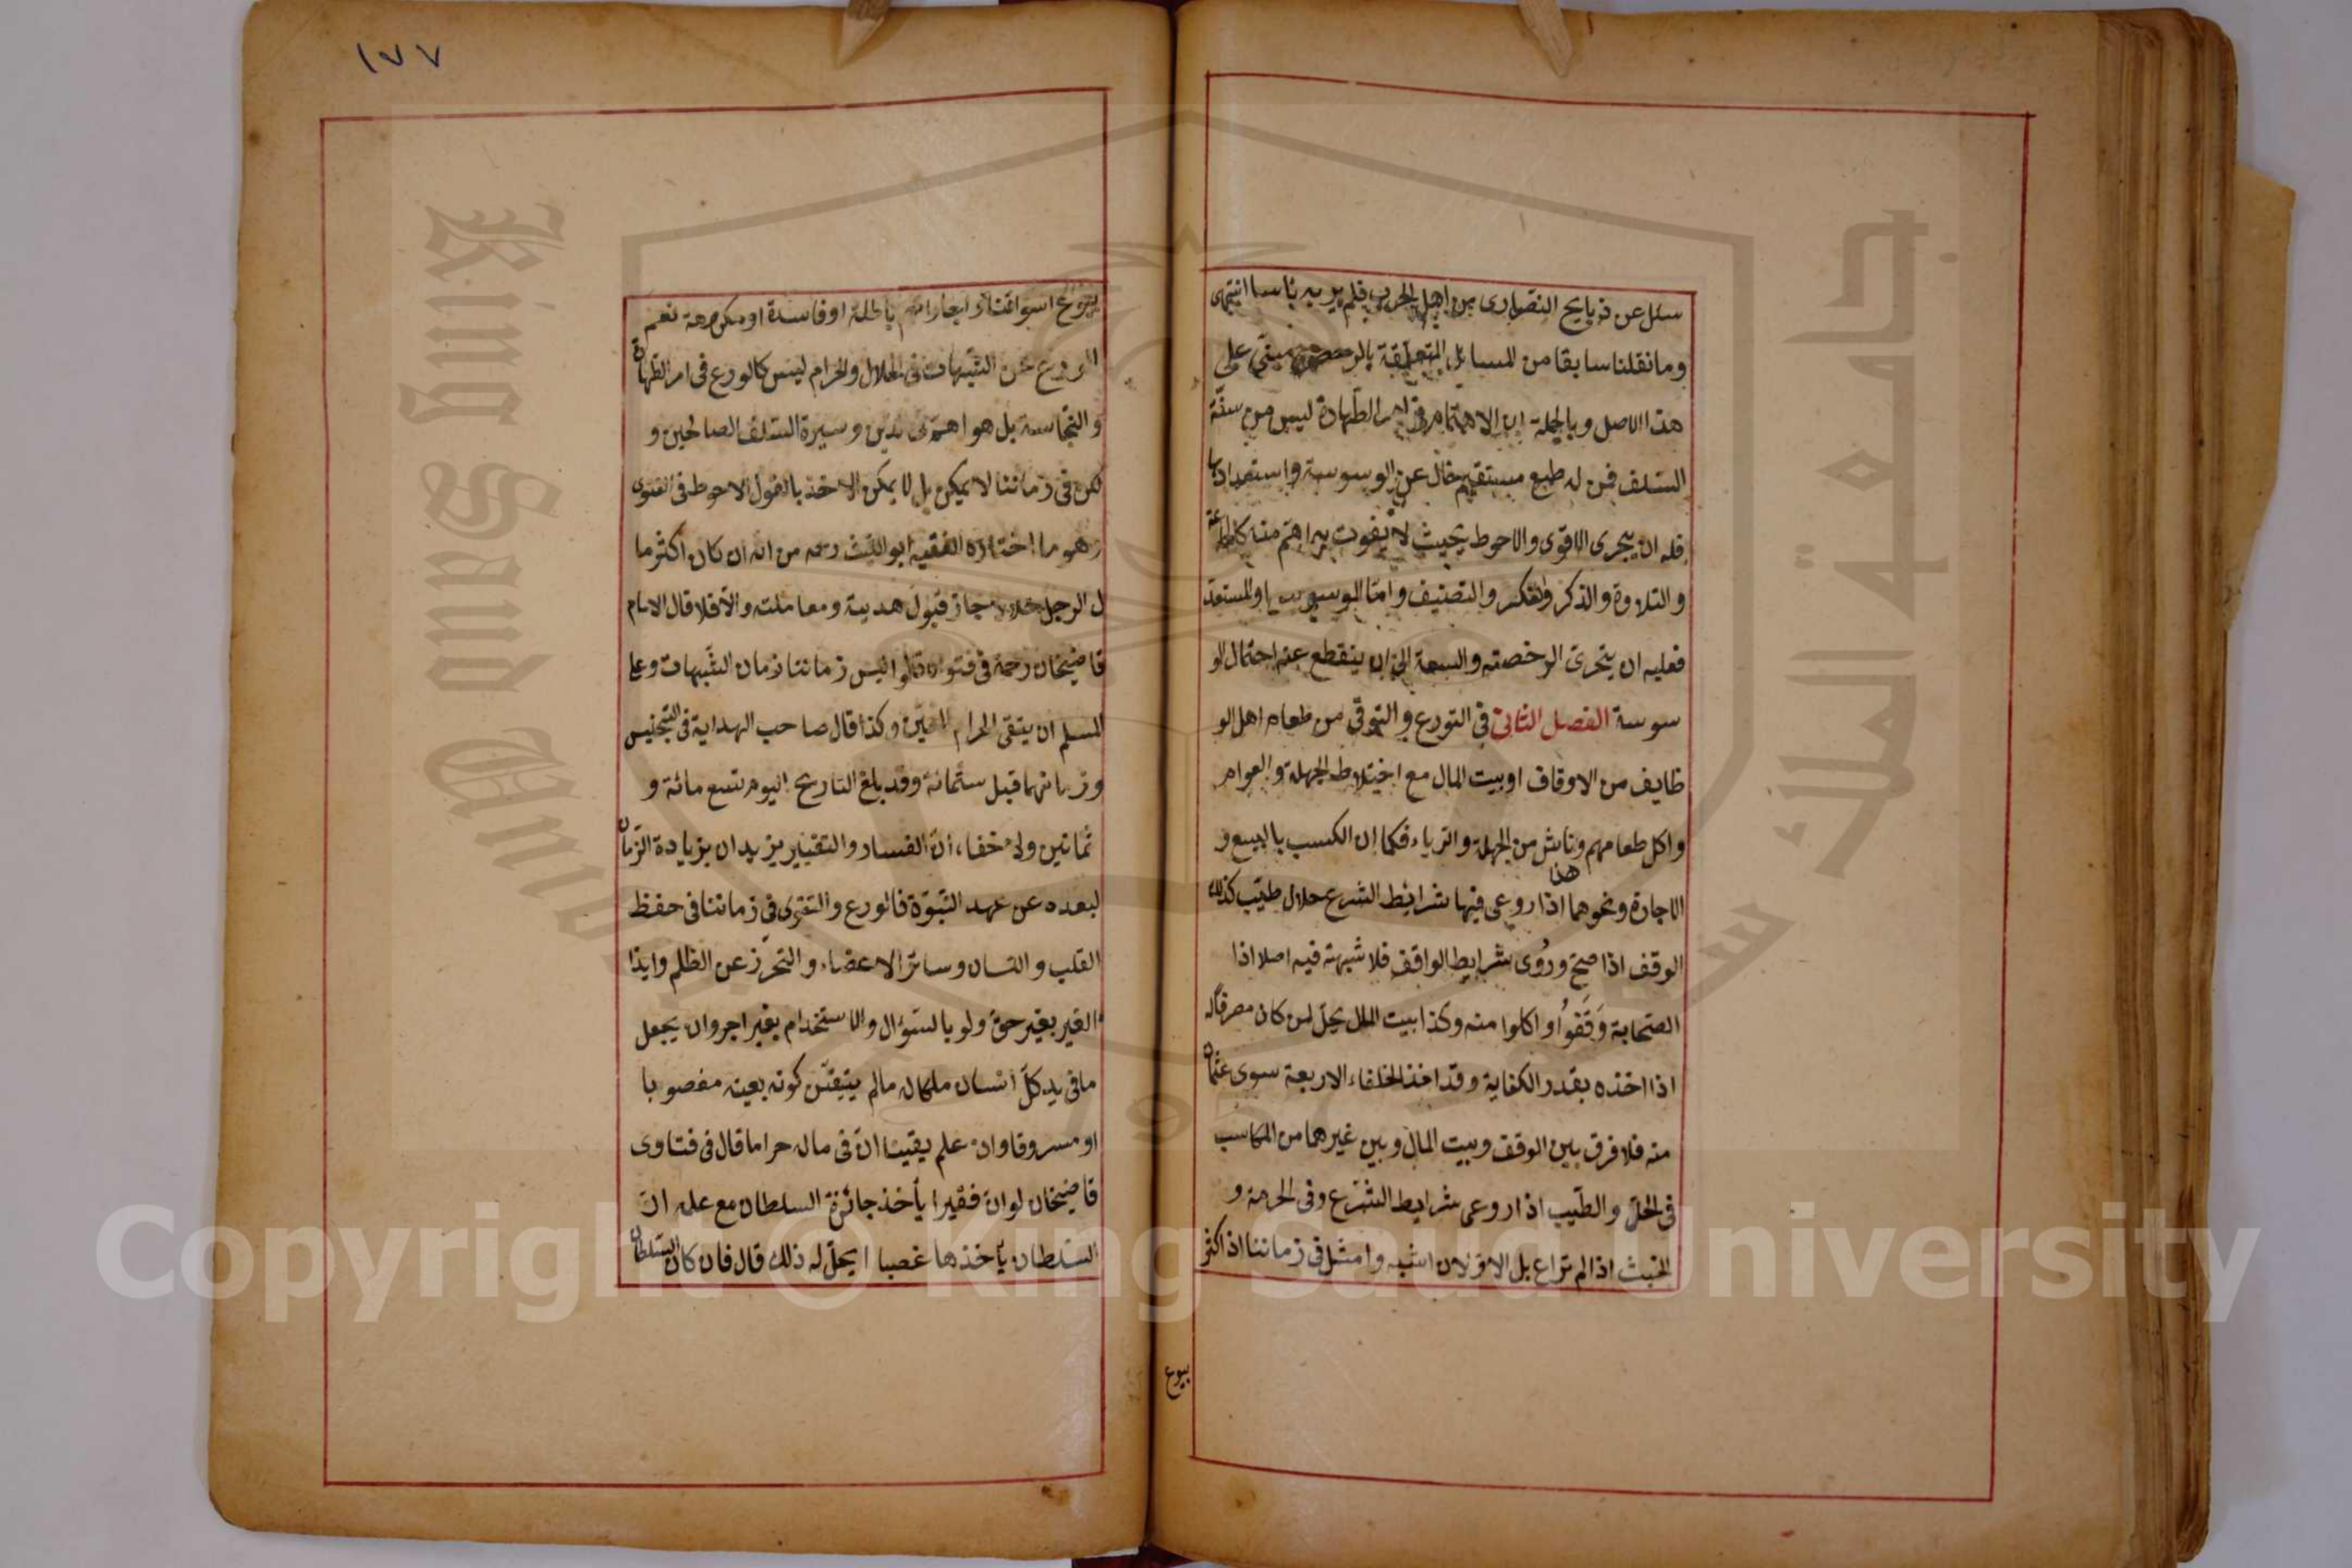 سئل عن ذبايح النصارى من اهل الحرب فلم ير به باسا انتهى
وما نقلنا سابقا من المسائل المتعلقة بالرخصة مبنى على
هذا الاصل وبالجملة ان الاهتمام فى امر الطهارة ليس من سنة
السلف فمن له طبع مستقيم خال عن الوسوسة واستعدادها
فله ان يتحرى الاقوى والاحوط بحيث لا يفوت به اهم منه كالمطالعة
والتلاوة والذكر والفكر والتصنيف واما الموسوس او المستعد
فعليه ان يتحرى الرخصة والسعة الى ان ينقطع عنه احتمال الو
سوسة الفصل الثانى فى التورع والتوقى من طعام اهل الو
ظايف من الاوقاف او بيت المال مع اختلاط الجهلة والعوام
واكل طعامهم هذا وناش من الجهلة والرياء فكما ان الكسب بالبيع و
الاجارة ونحوهما اذا روعى فيها شرائط الشرع حلال طيب كذلك
الوقف اذا صح وروى شرايط الواقف فلا شبهة فيه اصلا اذا
الصحابة وَقَفُوُا واكلوا منه وكذا بيت المال يحل لمن كان مصرفا له
اذا اخذه بقدر الكفاية وقد اخذ الخلفاء الاربعة سوى عثمان
منه فلا فرق بين الوقف وبيت المال وبين غيرهما من المكاسب
فى الحل والطيب اذا روعى شرايط الشرع وفى الحرمة و
الخبث اذا لم تراع بل الاولان اشبه وامثل فى زماننا اذ اكثر
بيوع
١٧٧
بيوع اسواقنا واجاراتهم باطلة او فاسدة او مكروهة نعم
الورع عن الشبهات فى الحلال والحرام ليس كالورع فى امر الطهارة
والنجاسة بل هو اهم فى الدين وسيرة السلف الصالحين و
لكن فى زماننا لا يمكن بل لا يمكن الاخذ بالقول الاحوط فى الفتوى
وهو ما اختاره الفقيه ابو الليث رحمه من انه ان كان اكثر ما
ل الرجل حلالا جاز قبول هدية ومعاملته والا فلا قال الامام
قاضيخان رحمه فى فتواه قالوا ليس زماننا زمان الشبهات وعلى
المسلم ان يتقى الحرام المعين وكذا قال صاحب الهداية فى التجنيس
وزمانهما قبل ستمائة وقد بلغ التاريخ اليوم تسع مائة و
ثمانين ولا خفاء ان الفساد والتغيير يزيدان بزيادة الزمان
لبعده عن عهد النبوّة فالورع والتقوى فى زماننا فى حفظ
القلب واللسان وسائر الاعضاء والتحرّز عن الظلم وايذا
الغير بغير حق ولو بالسؤال والاستخدام بغير اجر وان يجعل
ما فى يد كل انسان ملكا له مالم يتيقن كونه بعينه مغصوبا
او مسروقا وان علم يقينا انّ فى ماله حراما قال فى فتاوى
قاضيخان لو انّ فقيرا يأخذ جائزة السلطان مع علمه ان
السلطان يأخذها غصبا ايحلّ له ذلك قال فان كان السلطان
جامعة الملك سعود
King Saud University
Copyright © King Saud University